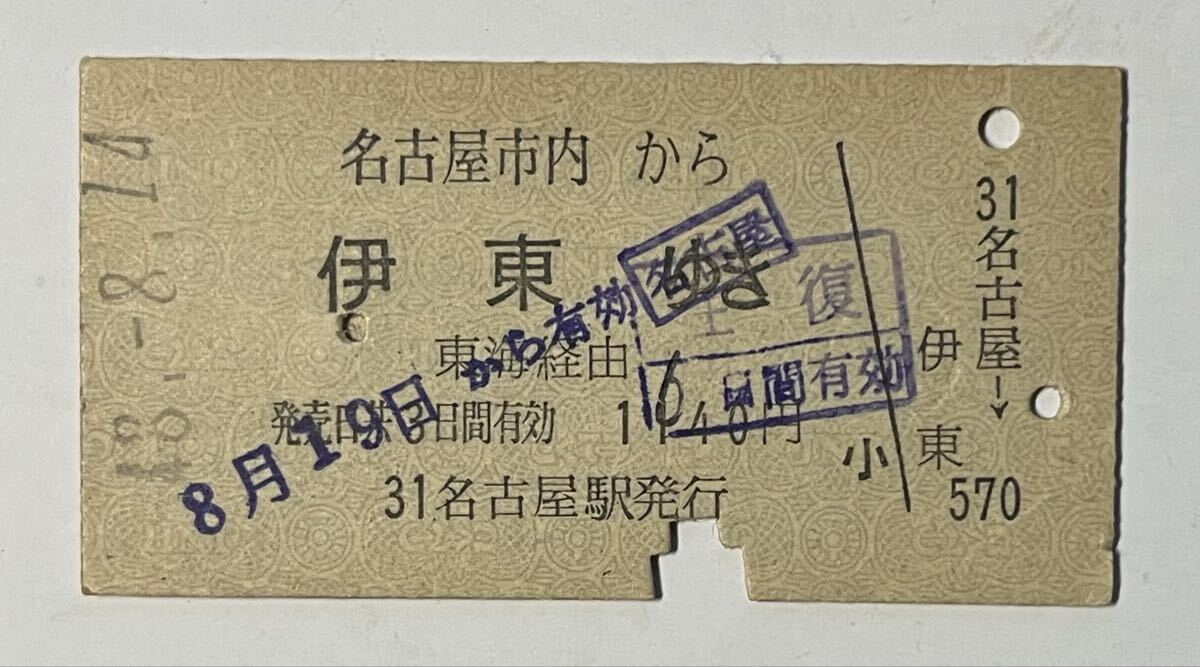 48.-8.14
名古屋市内 から
伊東ゆき
東海経由
発売日共3日間有効 1140円
31名古屋駅発行
8月19日から有効
名古屋
復
6日間有効
小
31名古屋→
伊東
570